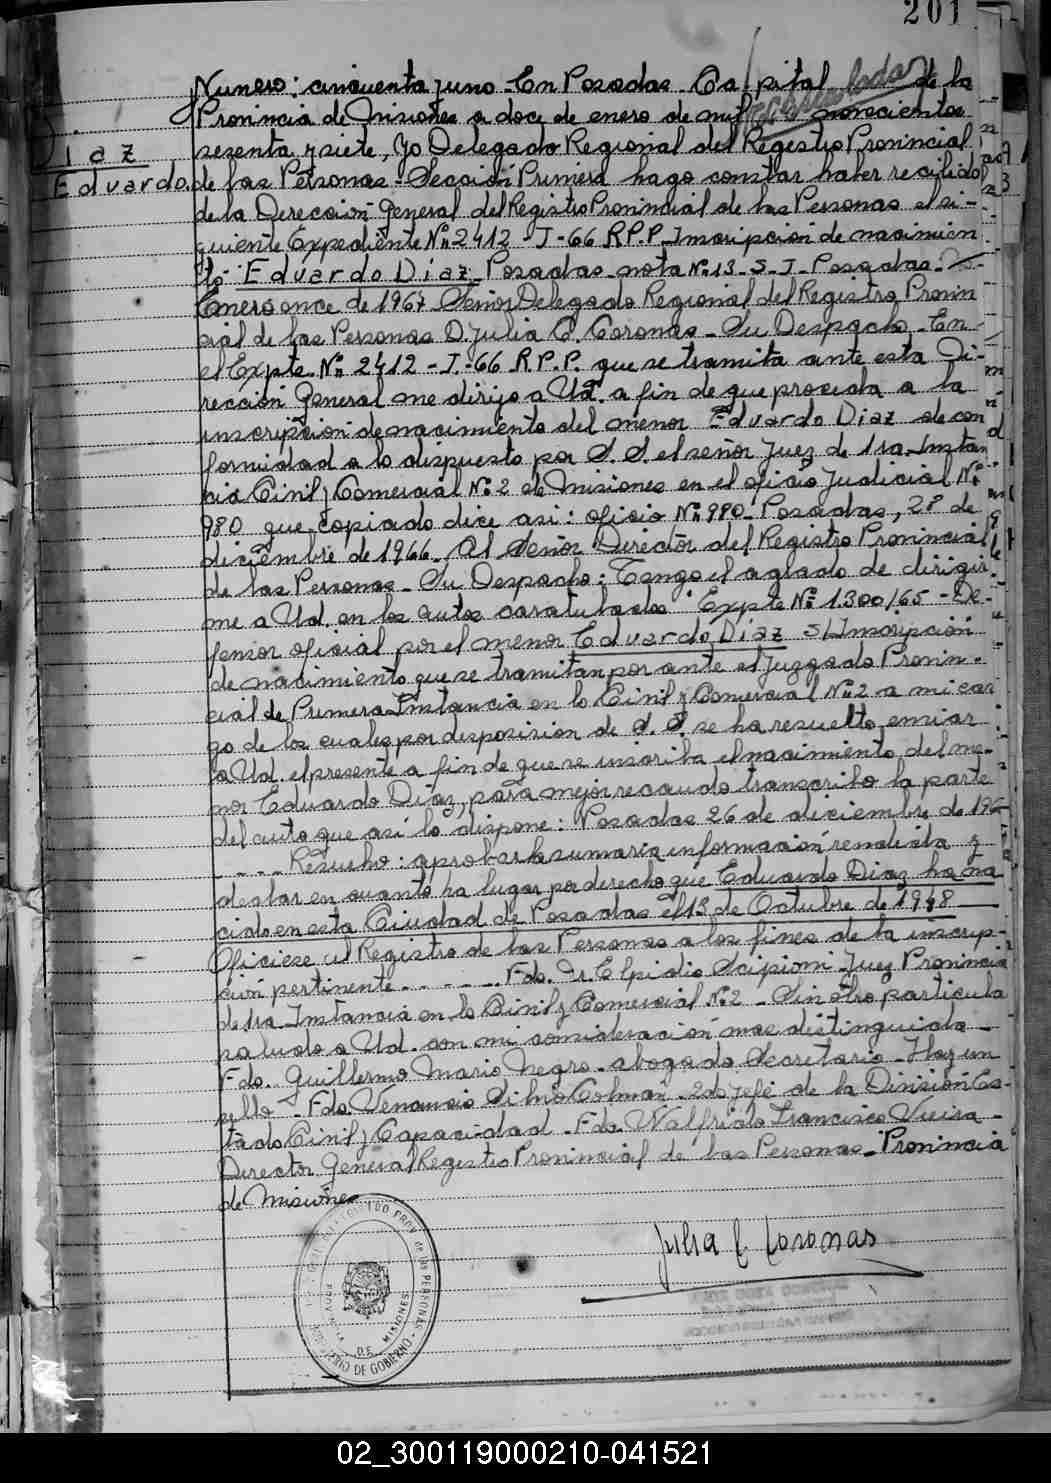 201
Numero: cincuenta y uno - En Posadas Capital de la
Provincia de Misiones a doce de enero de mil novecientos
iaz
sesenta y siete, yo Delegado Regional del Registro Provincial
Eduardo.
de las Personas - Sección Primera hago constar haber recibido
de la Dirección General del Registro Provincial de las Personas el si-
guiente Expediente Nº 2412 - J - 66 R.P.P. Inscripcion de nacimien
to - Eduardo Diaz - Posadas - nota Nº 13 - S - J - Posadas -
Enero once de 1967 - Señor Delegado Regional del Registro Provin
cial de las Personas D. Julia C. Coronas - Su Despacho - En
el Expte Nº 2412 - J - 66 R.P.P. que se tramita ante esta Di-
rección General me dirijo a Ud. a fin de que proceda a la
inscripción de nacimiento del menor Eduardo Diaz de con
formidad a lo dispuesto por S. S. el señor Juez de 1ra Instan
cia Civil y Comercial Nº 2 de Misiones en el oficio Judicial Nº
980 que copiado dice asi: oficio Nº 980 - Posadas, 28 de
diciembre de 1966 - Al Señor Director del Registro Provincial
de las Personas - Su Despacho: Tengo el agrado de dirigir
me a Ud. en los autos caratulados "Expte Nº 1.300/65 - De-
fensor oficial por el menor Eduardo Diaz S/Inscripción
de nacimiento que se tramitan por ante el Juzgado Provin-
cial de Primera Instancia en lo Civil y Comercial Nº 2 a mi car
go de los cuales por disposicion de S. S. se ha resuelto enviar
a Ud. el presente a fin de que se inscriba el nacimiento del me-
nor Eduardo Diaz, para mejor recaudo transcribo la parte
del auto que asi lo dispone: Posadas 26 de diciembre de 196
- - - - Resuelvo: aprobar la sumaria información rendida y
declarar en cuanto ha lugar por derecho que Eduardo Diaz ha na
cido en esta Ciudad de Posadas el 13 de Octubre de 1948
Oficiese al Registro de las Personas a los fines de la inscrip-
cion pertinente - - - - - - Fdo. Dr. Elpidio Scipioni - Juez Provincia
de 1ra Instancia en lo Civil y Comercial Nº 2 - Sin otro particula
saludo a Ud. con mi consideracion mas distinguida -
Fdo. Guillermo Mario Negro - abogado Secretario - Hay un
sello - Fdo. Venancio Silvio Colman - 2do Jefe de la Division Es-
tado Civil y Capacidad - Fdo. Walfrido Francisco Vieira -
Director General Registro Provincial de las Personas - Provincia
de Misiones
Julia C. Coronas
PROVINCIA DE MISIONES
MINISTERIO DE GOBIERNO
02_300119000210-041521